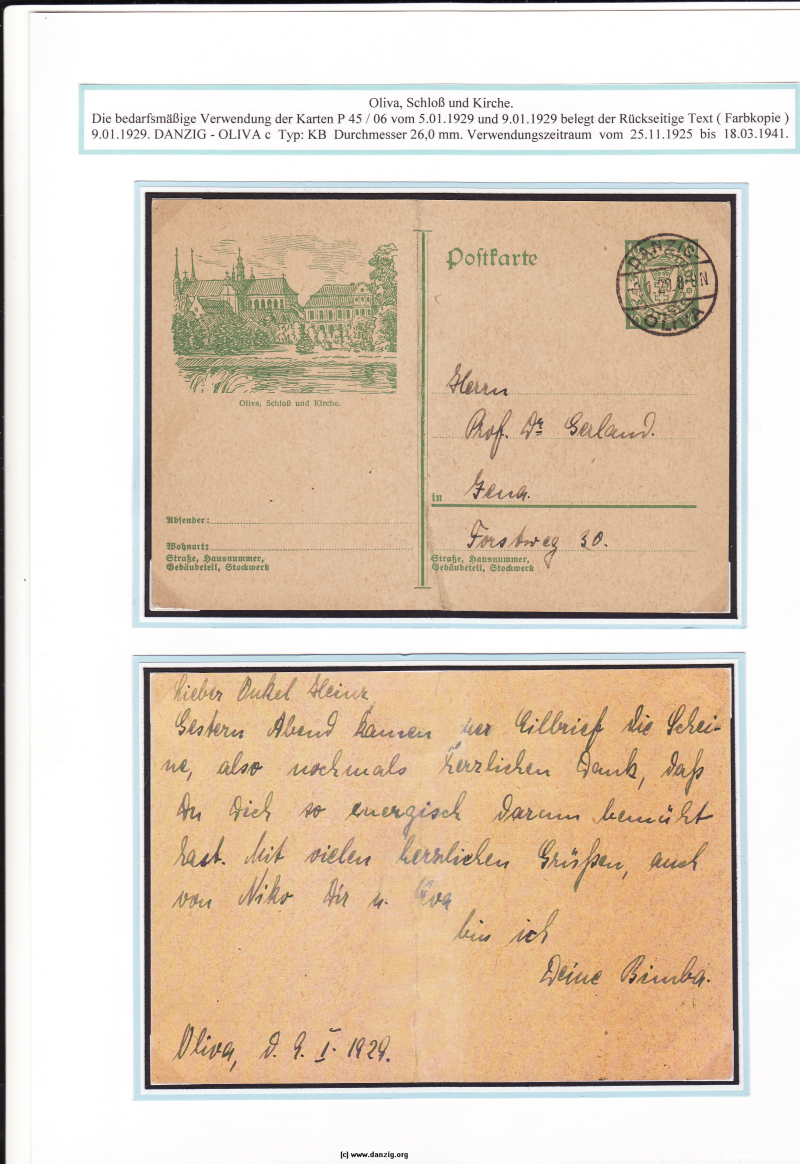 Oliva, Schloß und Kirche.
Die bedarfsmäßige Verwendung der Karten P 45 / 06 vom 5.01.1929 und 9.01.1929 belegt der Rückseitige Text ( Farbkopie )
9.01.1929. DANZIG - OLIVA c Typ: KB Durchmesser 26,0 mm. Verwendungszeitraum vom 25.11.1925 bis 18.03.1941.
Postkarte
DANZIG
OLIVA
Oliva, Schloß und Kirche.
Herrn
Prof. Dr Gerland.
in Jena.
Forstweg 30.
Absender:
Wohnort:
Straße, Hausnummer,
Gebäudeteil, Stockwerk
Straße, Hausnummer,
Gebäudeteil, Stockwerk
Lieber Onkel Heinz
Gestern Abend kamen per Eilbrief die Schei-
ne, also nochmals herzlichen Dank, daß
Du Dich so energisch darum bemüht
hast. Mit vielen herzlichen Grüßen, auch
von Niko Dir u. Eva
bin ich
Deine Bimba.
Oliva, d. 9. I. 1929.
(c) www.danzig.org